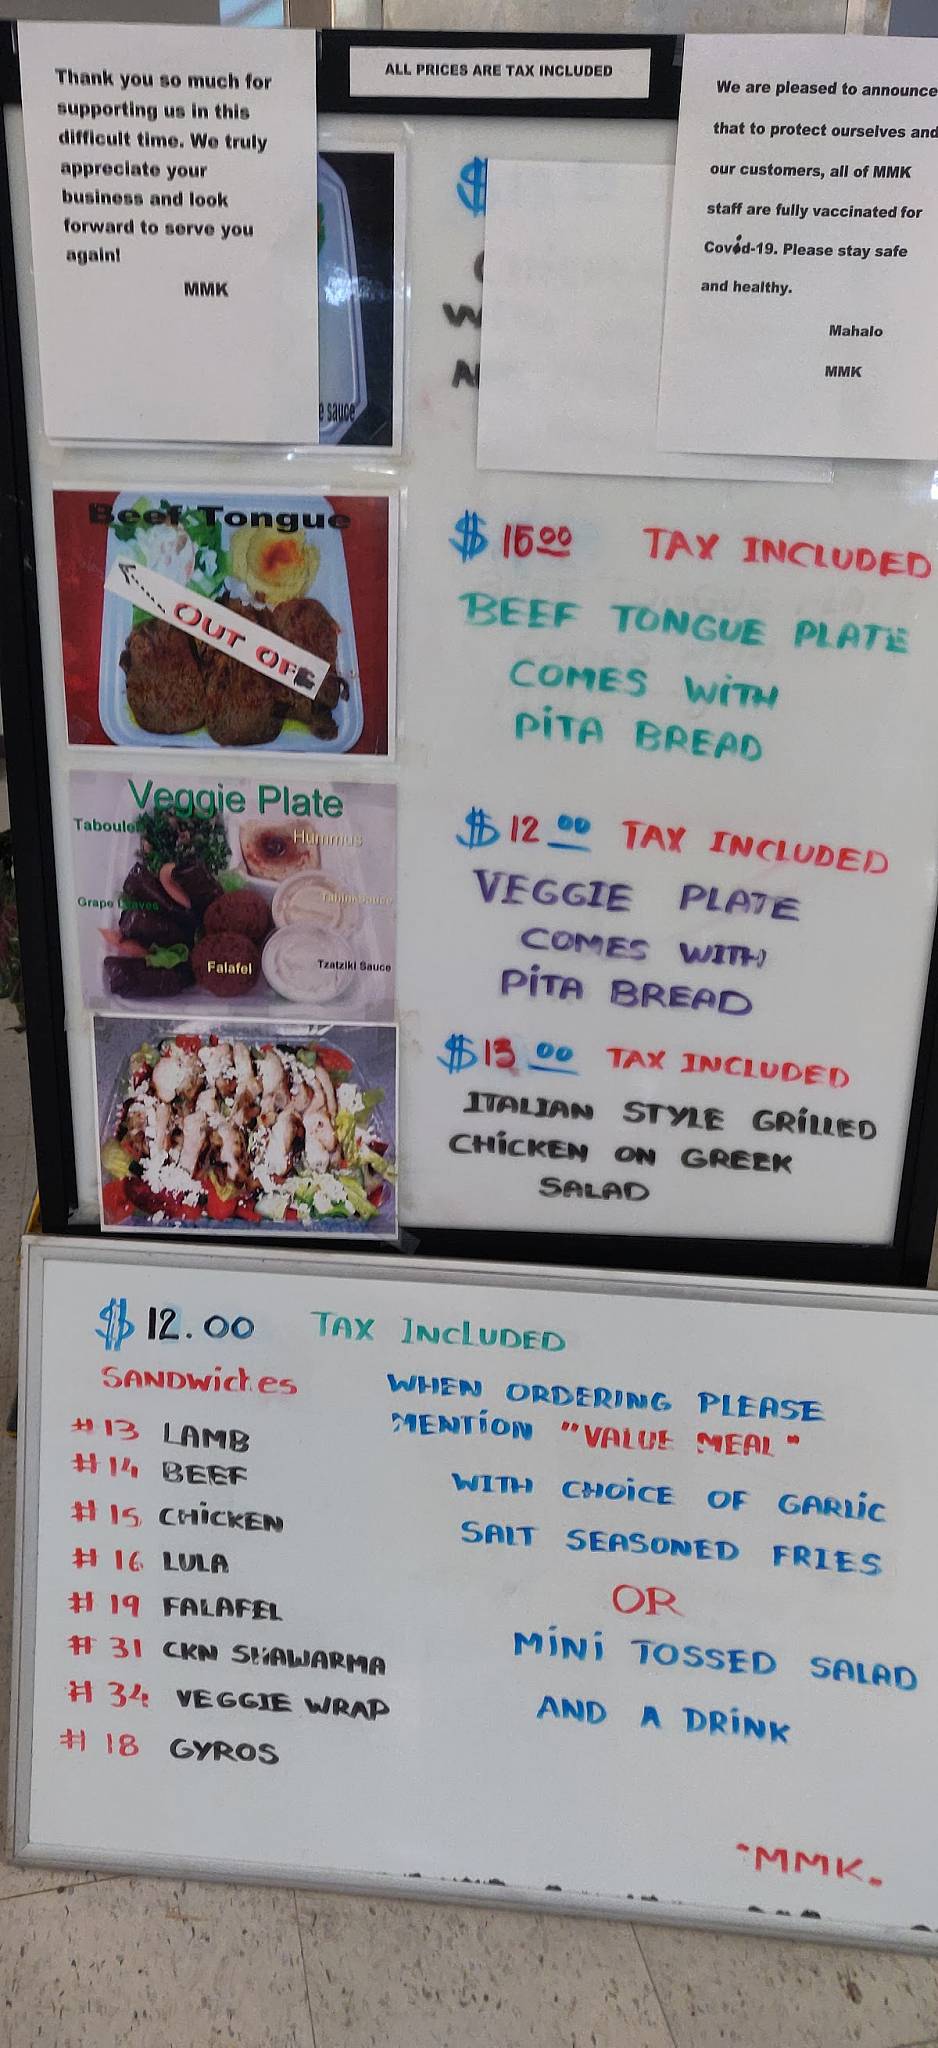 Thank you so much for
supporting us in this
difficult time. We truly
appreciate your
business and look
forward to serve you
again!
MMK
ALL PRICES ARE TAX INCLUDED
We are pleased to announce
that to protect ourselves and
our customers, all of MMK
staff are fully vaccinated for
Covid-19. Please stay safe
and healthy.
Mahalo
MMK
$
sauce
Beef Tongue
OUT OF
$ 15.00 TAX INCLUDED
BEEF TONGUE PLATE
COMES WITH
PITA BREAD
Veggie Plate
Tabouleh
Hummus
Grape Leaves
Tahini Sauce
Falafel
Tzatziki Sauce
$ 12.00 TAX INCLUDED
VEGGIE PLATE
COMES WITH
PITA BREAD
$ 13.00 TAX INCLUDED
ITALIAN STYLE GRILLED
CHICKEN ON GREEK
SALAD
$ 12.00 TAX INCLUDED
SANDWICHES
# 13 LAMB
# 14 BEEF
# 15 CHICKEN
# 16 LULA
# 19 FALAFEL
# 31 CKN SHAWARMA
# 34 VEGGIE WRAP
# 18 GYROS
WHEN ORDERING PLEASE
MENTION "VALUE MEAL"
WITH CHOICE OF GARLIC
SALT SEASONED FRIES
OR
MINI TOSSED SALAD
AND A DRINK
MMK.